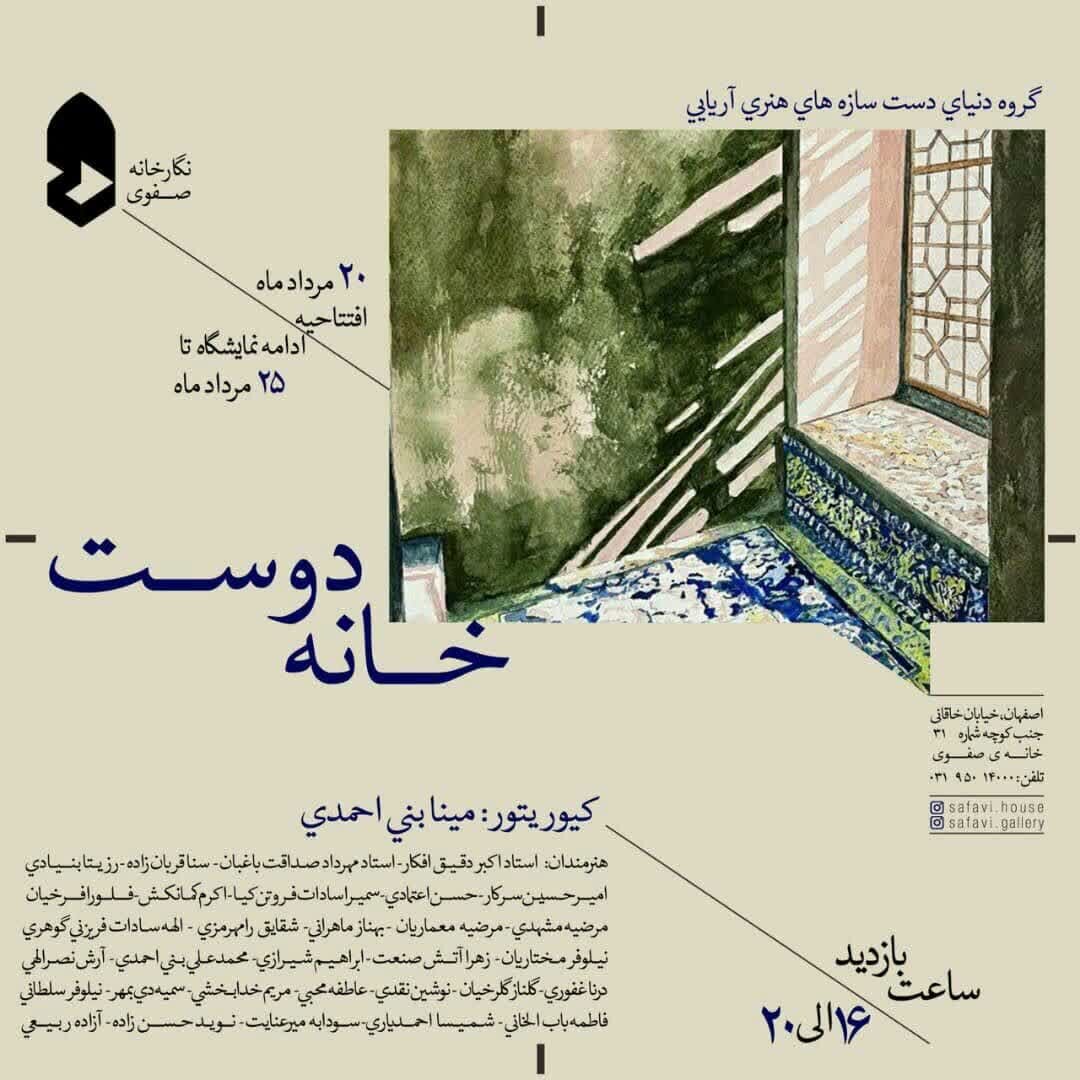 گروه دنياي دست سازه هاي هنري آريايي
نگارخانه
صفوی
۲۰ مرداد ماه
افتتاحیه
ادامه نمایشگاه تا
۲۵ مرداد ماه
خانه دوست
اصفهان، خیابان خاقانی
جنب کوچه شماره ۳۱
خانه ی صفوی
تلفن: ۱۴۰۰۰ ۹۵۰ ۰۳۱
safavi.house
safavi.gallery
کیوریتور: مینا بني احمدي
هنرمندان: استاد اکبر دقیق افکار - استاد مهرداد صداقت باغبان - سنا قربان زاده - رزیتا بنیادي
امیرحسین سرکار - حسن اعتمادي - سمیرا سادات فروتن کیا - اکرم کمانکش - فلورا فرخیان
مرضیه مشهدي - مرضیه معماریان - بهناز ماهراني - شقایق رامهرمزي - الهه سادات فریزني گوهري
نیلوفر مختاریان - زهرا آتش صنعت - ابراهیم شیرازي - محمدعلي بني احمدي - آرش نصرالهي
درنا غفوري - گلناز گلرخیان - نوشین نقدي - عاطفه محبي - مریم خدابخشي - سمیه دي بمهر - نیلوفر سلطاني
فاطمه باب الخاني - شمیسا احمدیاري - سودابه میرعنایت - نوید حسن زاده - آزاده ربیعي
ساعت بازدید
۱۶ الی ۲۰